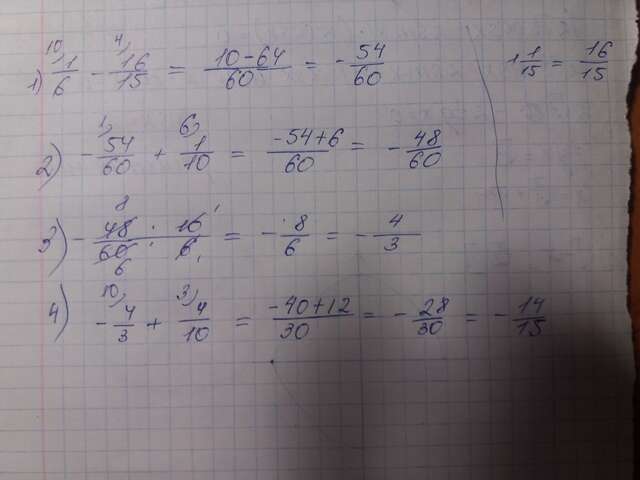 1) 10) 1/6 - 4) 16/15 = (10-64)/60 = -54/60 1 1/15 = 16/15
2) 1) -54/60 + 6) 1/10 = (-54+6)/60 = -48/60
3) -48 8/60 6 : 10 1/6 1 = -8/6 = -4/3
4) 10) -4/3 + 3) 4/10 = (-40+12)/30 = -28/30 = -14/15